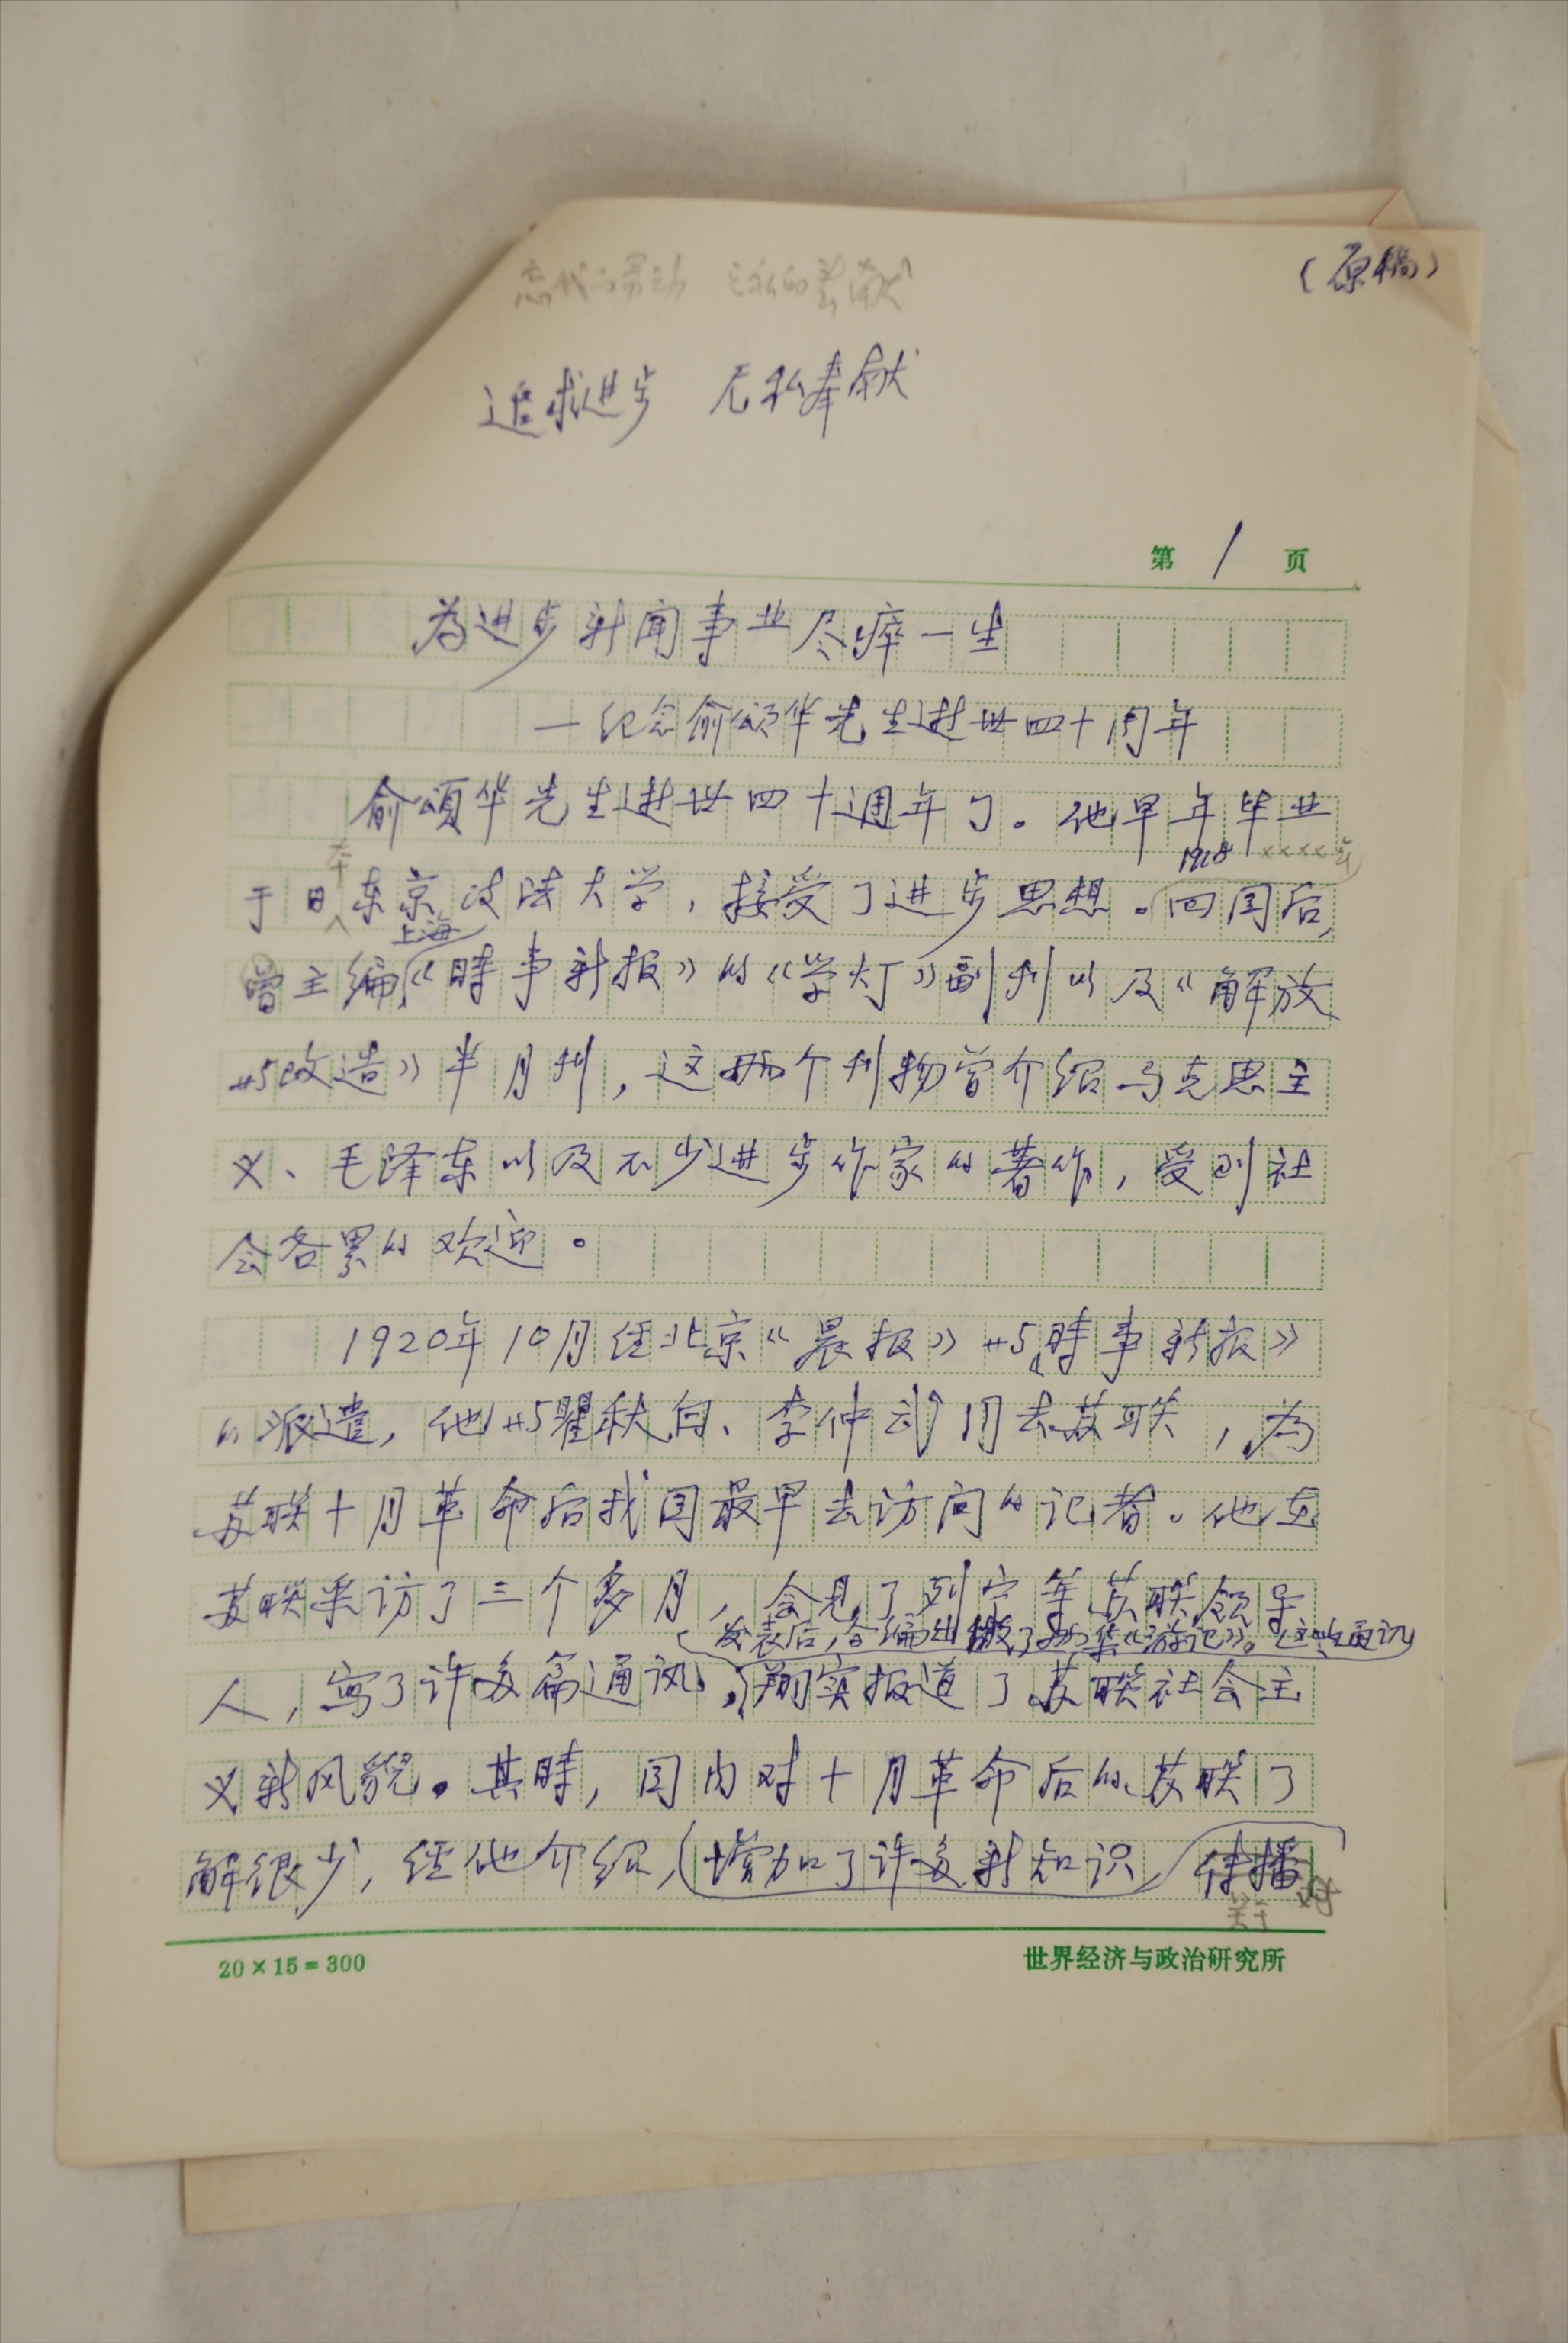 (原稿)
忘我的劳动 无私的奉献
追求进步 无私奉献
第 1 页
为进步新闻事业尽瘁一生
—纪念俞颂华先生逝世四十周年
俞颂华先生逝世四十週年了。他早年毕业
本
1918 ××××年
于日东京政法大学，接受了进步思想。回国后，
上海
曾主编《时事新报》的《学灯》副刊以及《解放
与改造》半月刊，这两个刊物曾介绍马克思主
义、毛泽东以及不少进步作家的著作，受到社
会各界的欢迎。
1920年10月经北京《晨报》与《時事新报》
的派遣，他与瞿秋白、李仲武同去苏联，为
苏联十月革命后我国最早去访问的记者。他在
苏联采访了三个多月，会见了列宁等苏联领导
发表后，合编出版了两集《游记》。这些通讯
人，写了许多篇通讯，翔实报道了苏联社会主
义新风貌。其時，国内对十月革命后的苏联了
解很少，经他介绍，增加了许多新知识，传播
关于 好
20×15=300
世界经济与政治研究所